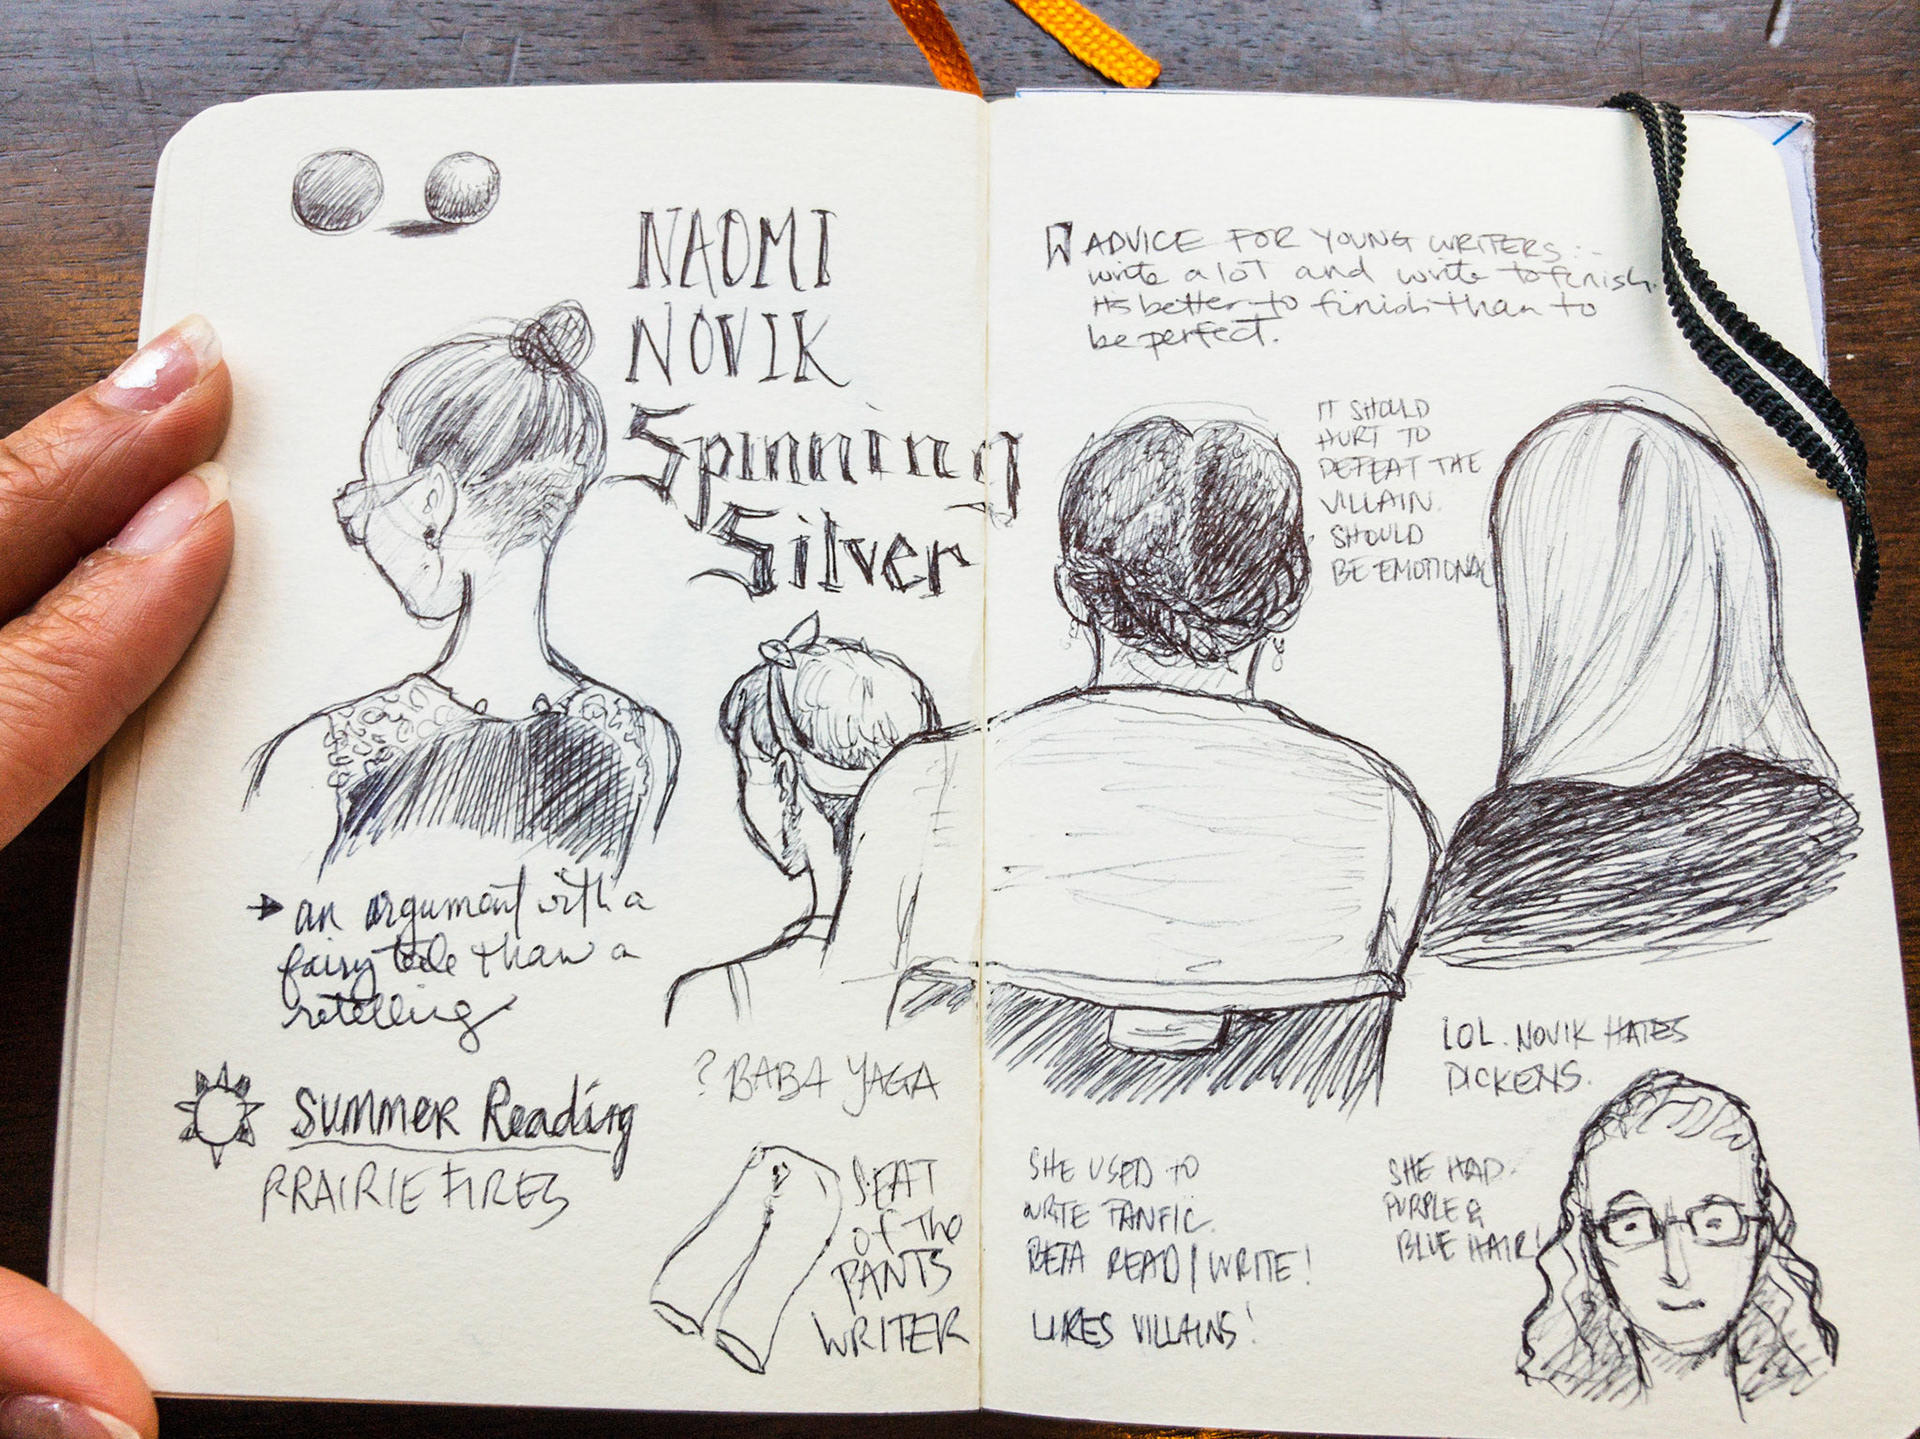 NAOMI
NOVIK
Spinning
Silver
→ an argument with a
fairy tale than a
retelling
SUMMER Reading
PRAIRIE FIRES
? BABA YAGA
SEAT
of the
PANTS
WRITER
ADVICE FOR YOUNG WRITERS:-
write a lot and write to finish.
its better to finish than to
be perfect.
IT SHOULD
HURT TO
DEFEAT THE
VILLAIN.
SHOULD
BE EMOTIONAL
LOL. NOVIK HATES
DICKENS.
SHE USED TO
WRITE FANFIC.
BETA READ / WRITE!
LIKES VILLAINS!
SHE HAD
PURPLE &
BLUE HAIR!